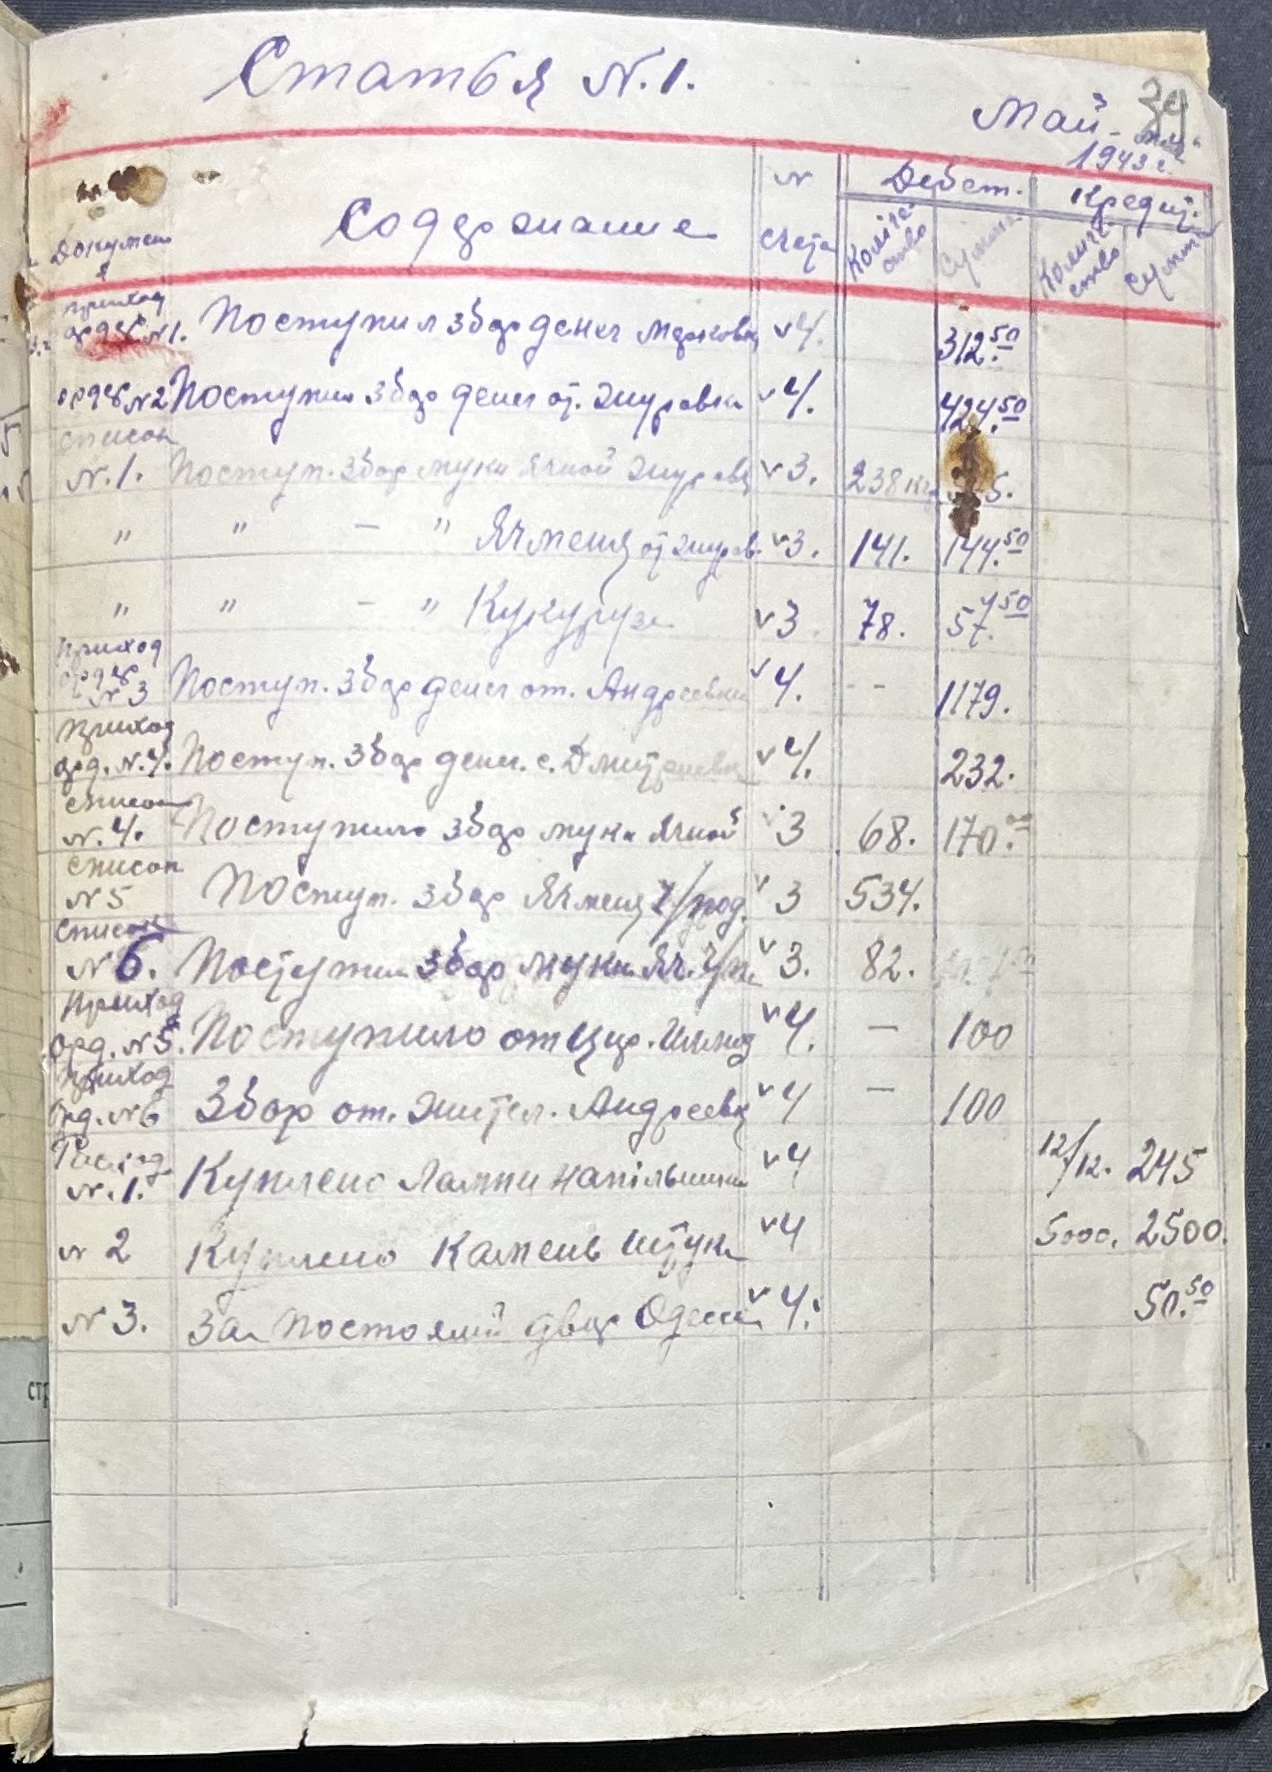 Статья N.1.
34
Май - м-ц
1943 г.
Документ
Содержание
N счета
Дебет.
Кредит.
Количество
Сумма
Количество
Сумма
Приход ордер N1. Поступил збор денег v4. 312.50
ордер N2 Поступил збор денег от. Журовка v4. 424.50
Список N.1. Поступ. збор муки Ячной Журовка v3. 238 кг. 5.
" " — " Ячменя от Журов. v3. 141. 144.50
" " — " Кукурузы v3 78. 57.50
Приход ордер N3 Поступ. збор денег от. Андреевки v4. -- 1179.
Приход орд. N.4. Поступ. збор денег. с. Дмитриевка v4. 232.
Список N.4. Поступило збор муки Ячной v3 68. 170.00
Список N5 Поступ. збор Ячменя v3 534.
Список N6. Поступил збор муки Яч. v3. 82.
Приход орд. N5. Поступило от v4. — 100
Приход орд. N6 Збор от. жител. Андреевка v4 — 100
Расход N.1. Куплено Лампи напільники v4 12/12. 245
N2 Куплено Камень штук v4 5000. 2500.
N3. За Постоялий двор Одесса v4. 50.50
стр